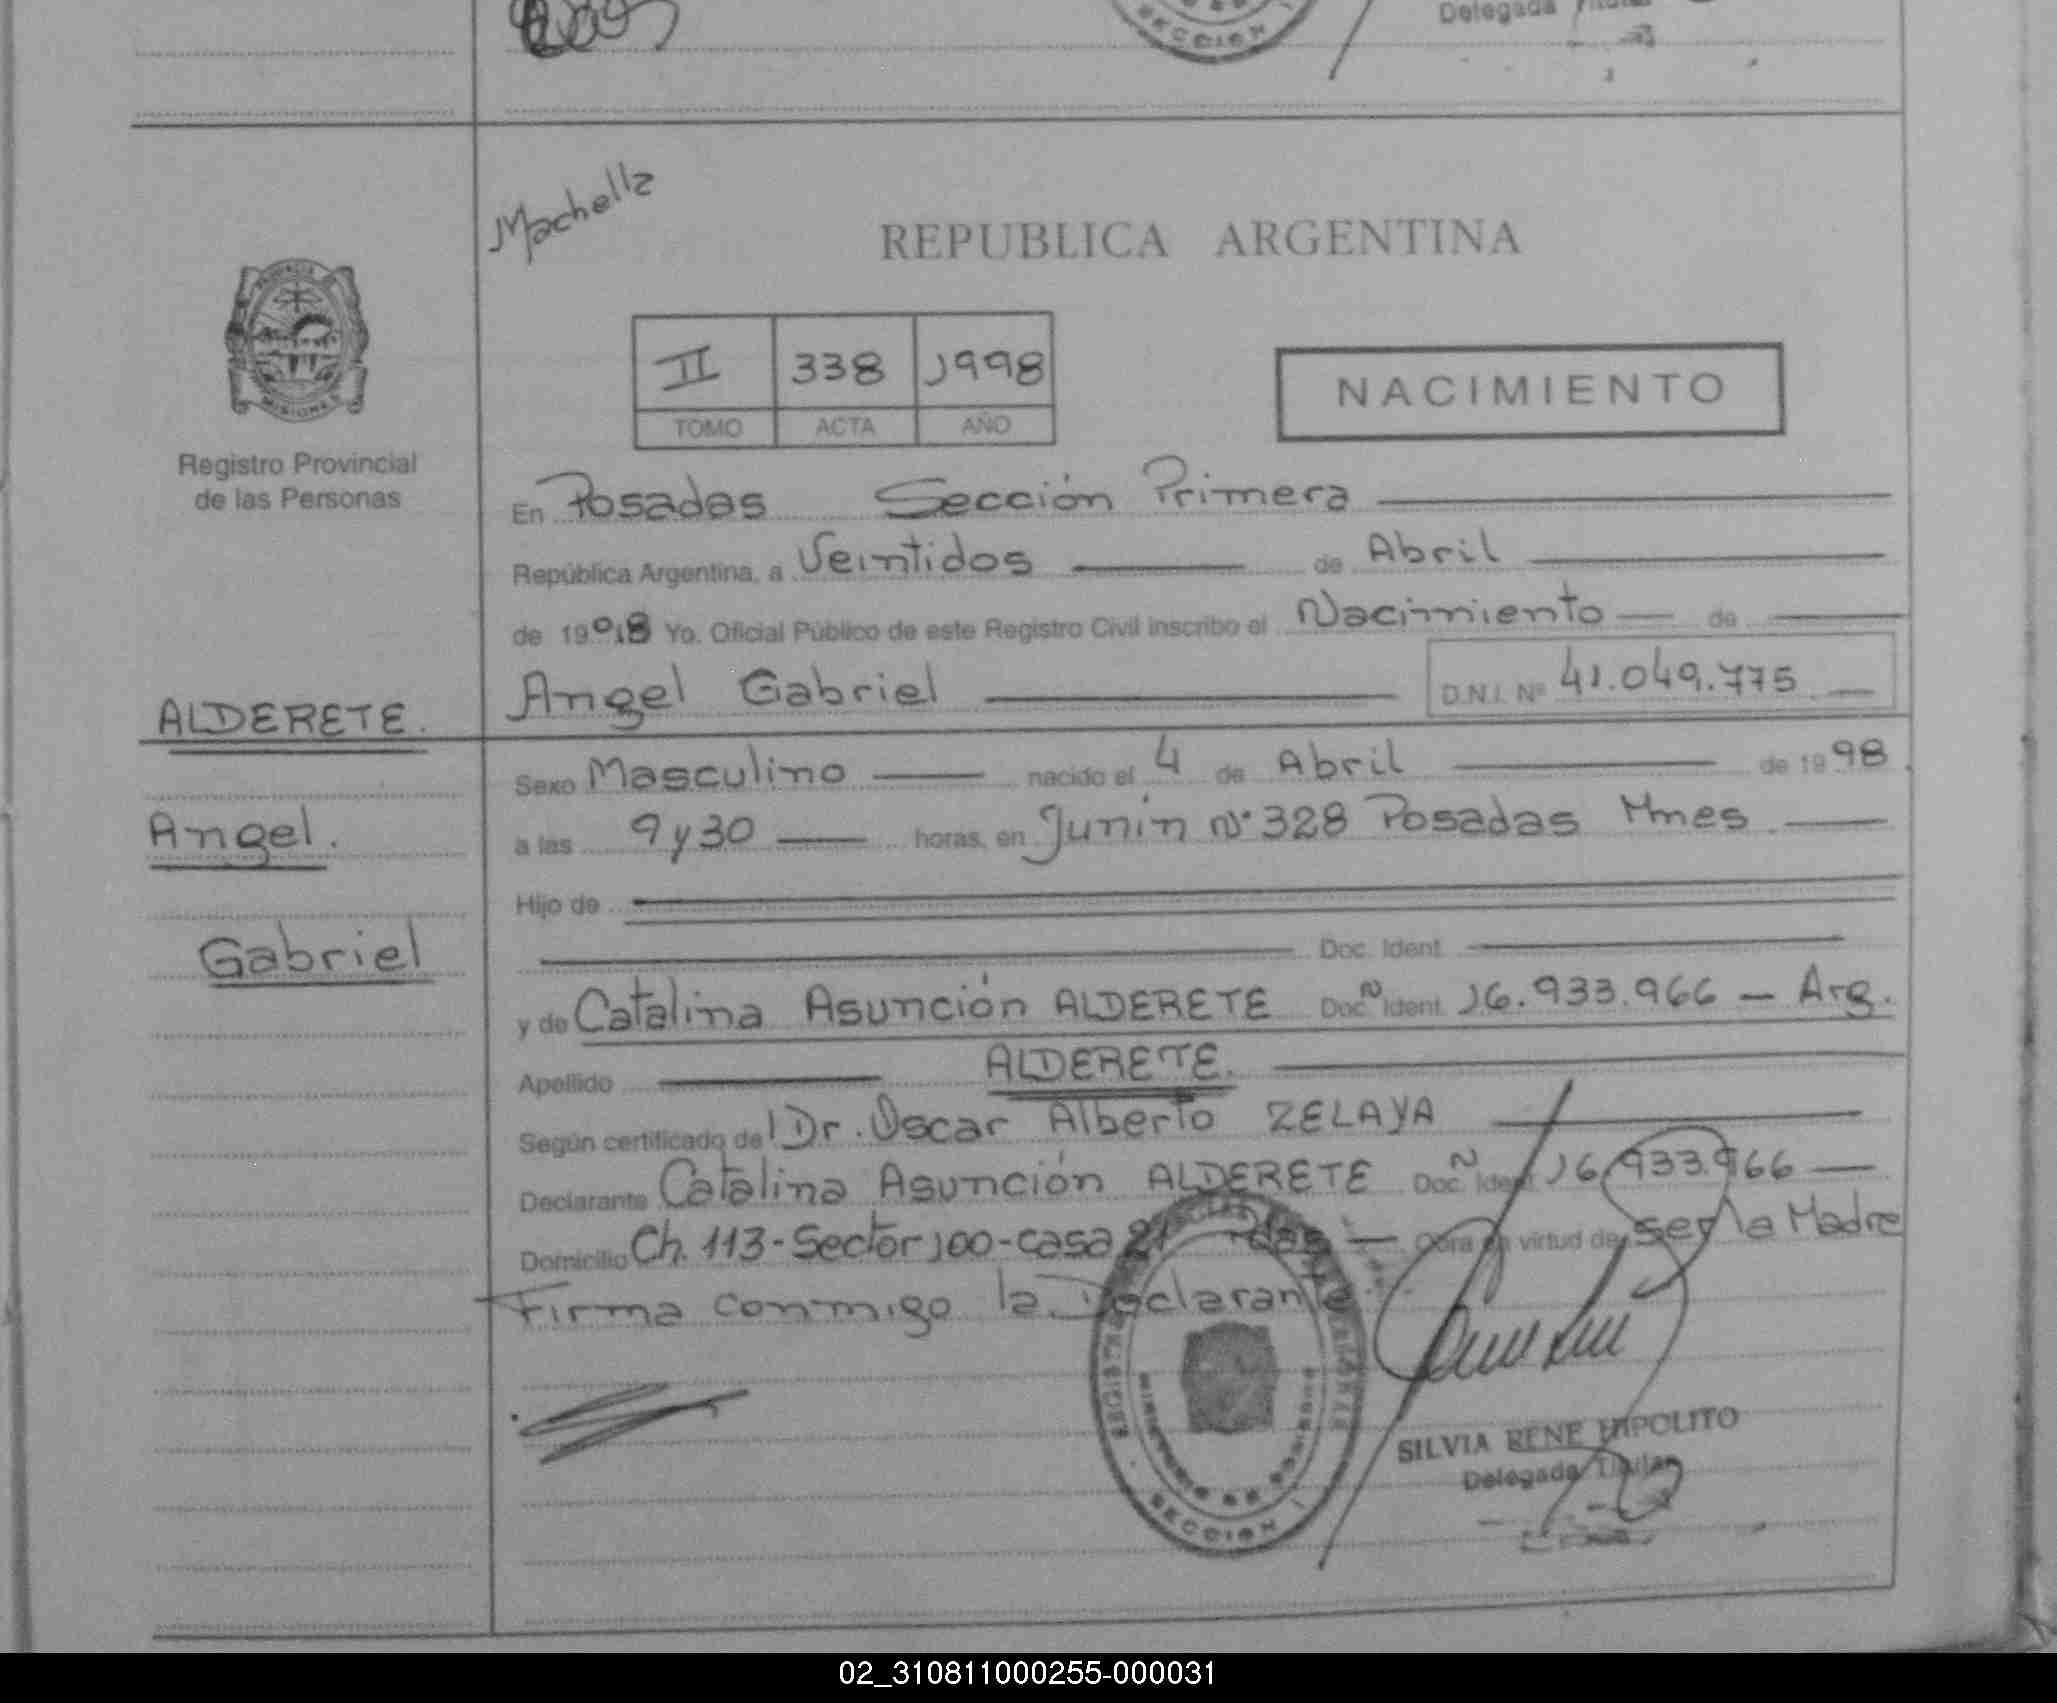 Delegada Titular
SECCION I
Machella
REPUBLICA ARGENTINA
MISIONES
II 338 1998
TOMO ACTA AÑO
NACIMIENTO
Registro Provincial
de las Personas
En Posadas Sección Primera
República Argentina, a Veintidos de Abril
de 1998 Yo. Oficial Público de este Registro Civil inscribo el Nacimiento de
Angel Gabriel D.N.I. Nº 41.049.775
ALDERETE.
Angel.
Gabriel
Sexo Masculino nacido el 4 de Abril de 1998
a las 9 y 30 horas, en Junín Nº 328 Posadas Mnes
Hijo de
Doc. Ident.
y de Catalina Asunción ALDERETE Doc. N Ident. 16.933.966 - Arg.
Apellido ALDERETE.
Según certificado del Dr. Oscar Alberto ZELAYA
Declarante Catalina Asunción ALDERETE Doc. N Ident. 16.933.966
Domicilio Ch. 113 - Sector 100 - casa 21 Pdas Obra en virtud de ser la Madre
Firma conmigo la Declarante
SECCION I
SILVIA RENE HIPOLITO
Delegada Titular
02_310811000255-000031